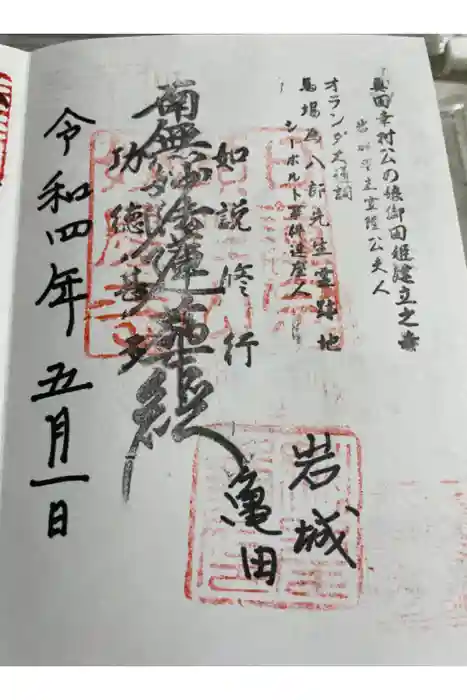 真田幸村公の娘御田姫建立之寺
岩城主宣隆公夫人
オランダ大通詞
馬場為八郎先生霊跡地
シーボルト事件連座人
如説修行
南無妙法蓮華経
功徳甚多
岩城
亀田
令和四年五月一日